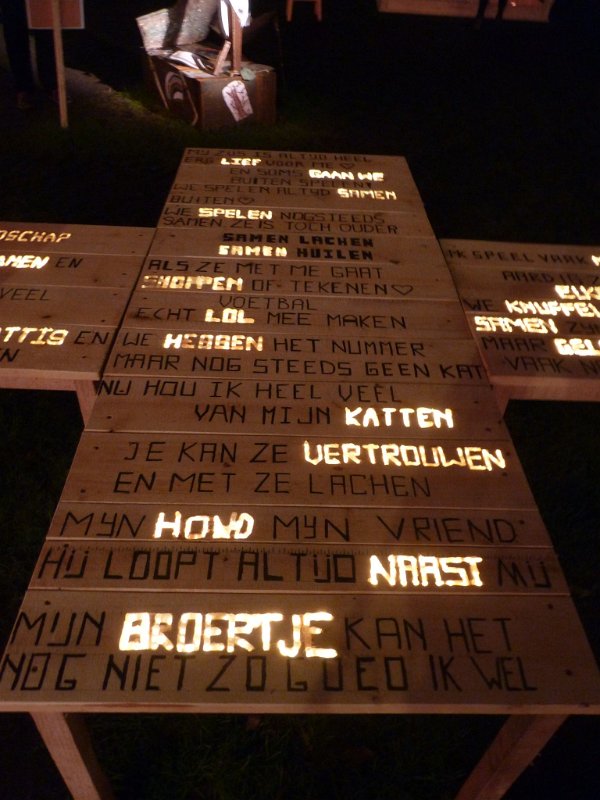 MIJN ZUS IS ALTIJD HEEL
ERG LIEF VOOR ME ♡
EN SOMS GAAN WE
BUITEN SPELEN!
WE SPELEN ALTIJD SAMEN
BUITEN ♡
WE SPELEN NOGSTEEDS
SAMEN ZE IS TOCH OUDER
SAMEN LACHEN
SAMEN HUILEN
ALS ZE MET ME GAAT
SHOPPEN OF TEKENEN ♡
VOETBAL
ECHT LOL MEE MAKEN
WE HEBBEN HET NUMMER
MAAR NOG STEEDS GEEN KAT
NU HOU IK HEEL VEEL
VAN MIJN KATTEN
JE KAN ZE VERTROUWEN
EN MET ZE LACHEN
MIJN HOND MIJN VRIEND
HIJ LOOPT ALTIJD NAAST MIJ
MIJN BROERTJE KAN HET
NOG NIET ZO GOED IK WEL
DSCHAP
AMEN EN
VEEL
ATTIG EN
EN
IK SPEEL VAAK
AARD
ELK
WE KNUFFEL
SAMEN
MAAR GEL
VAAK